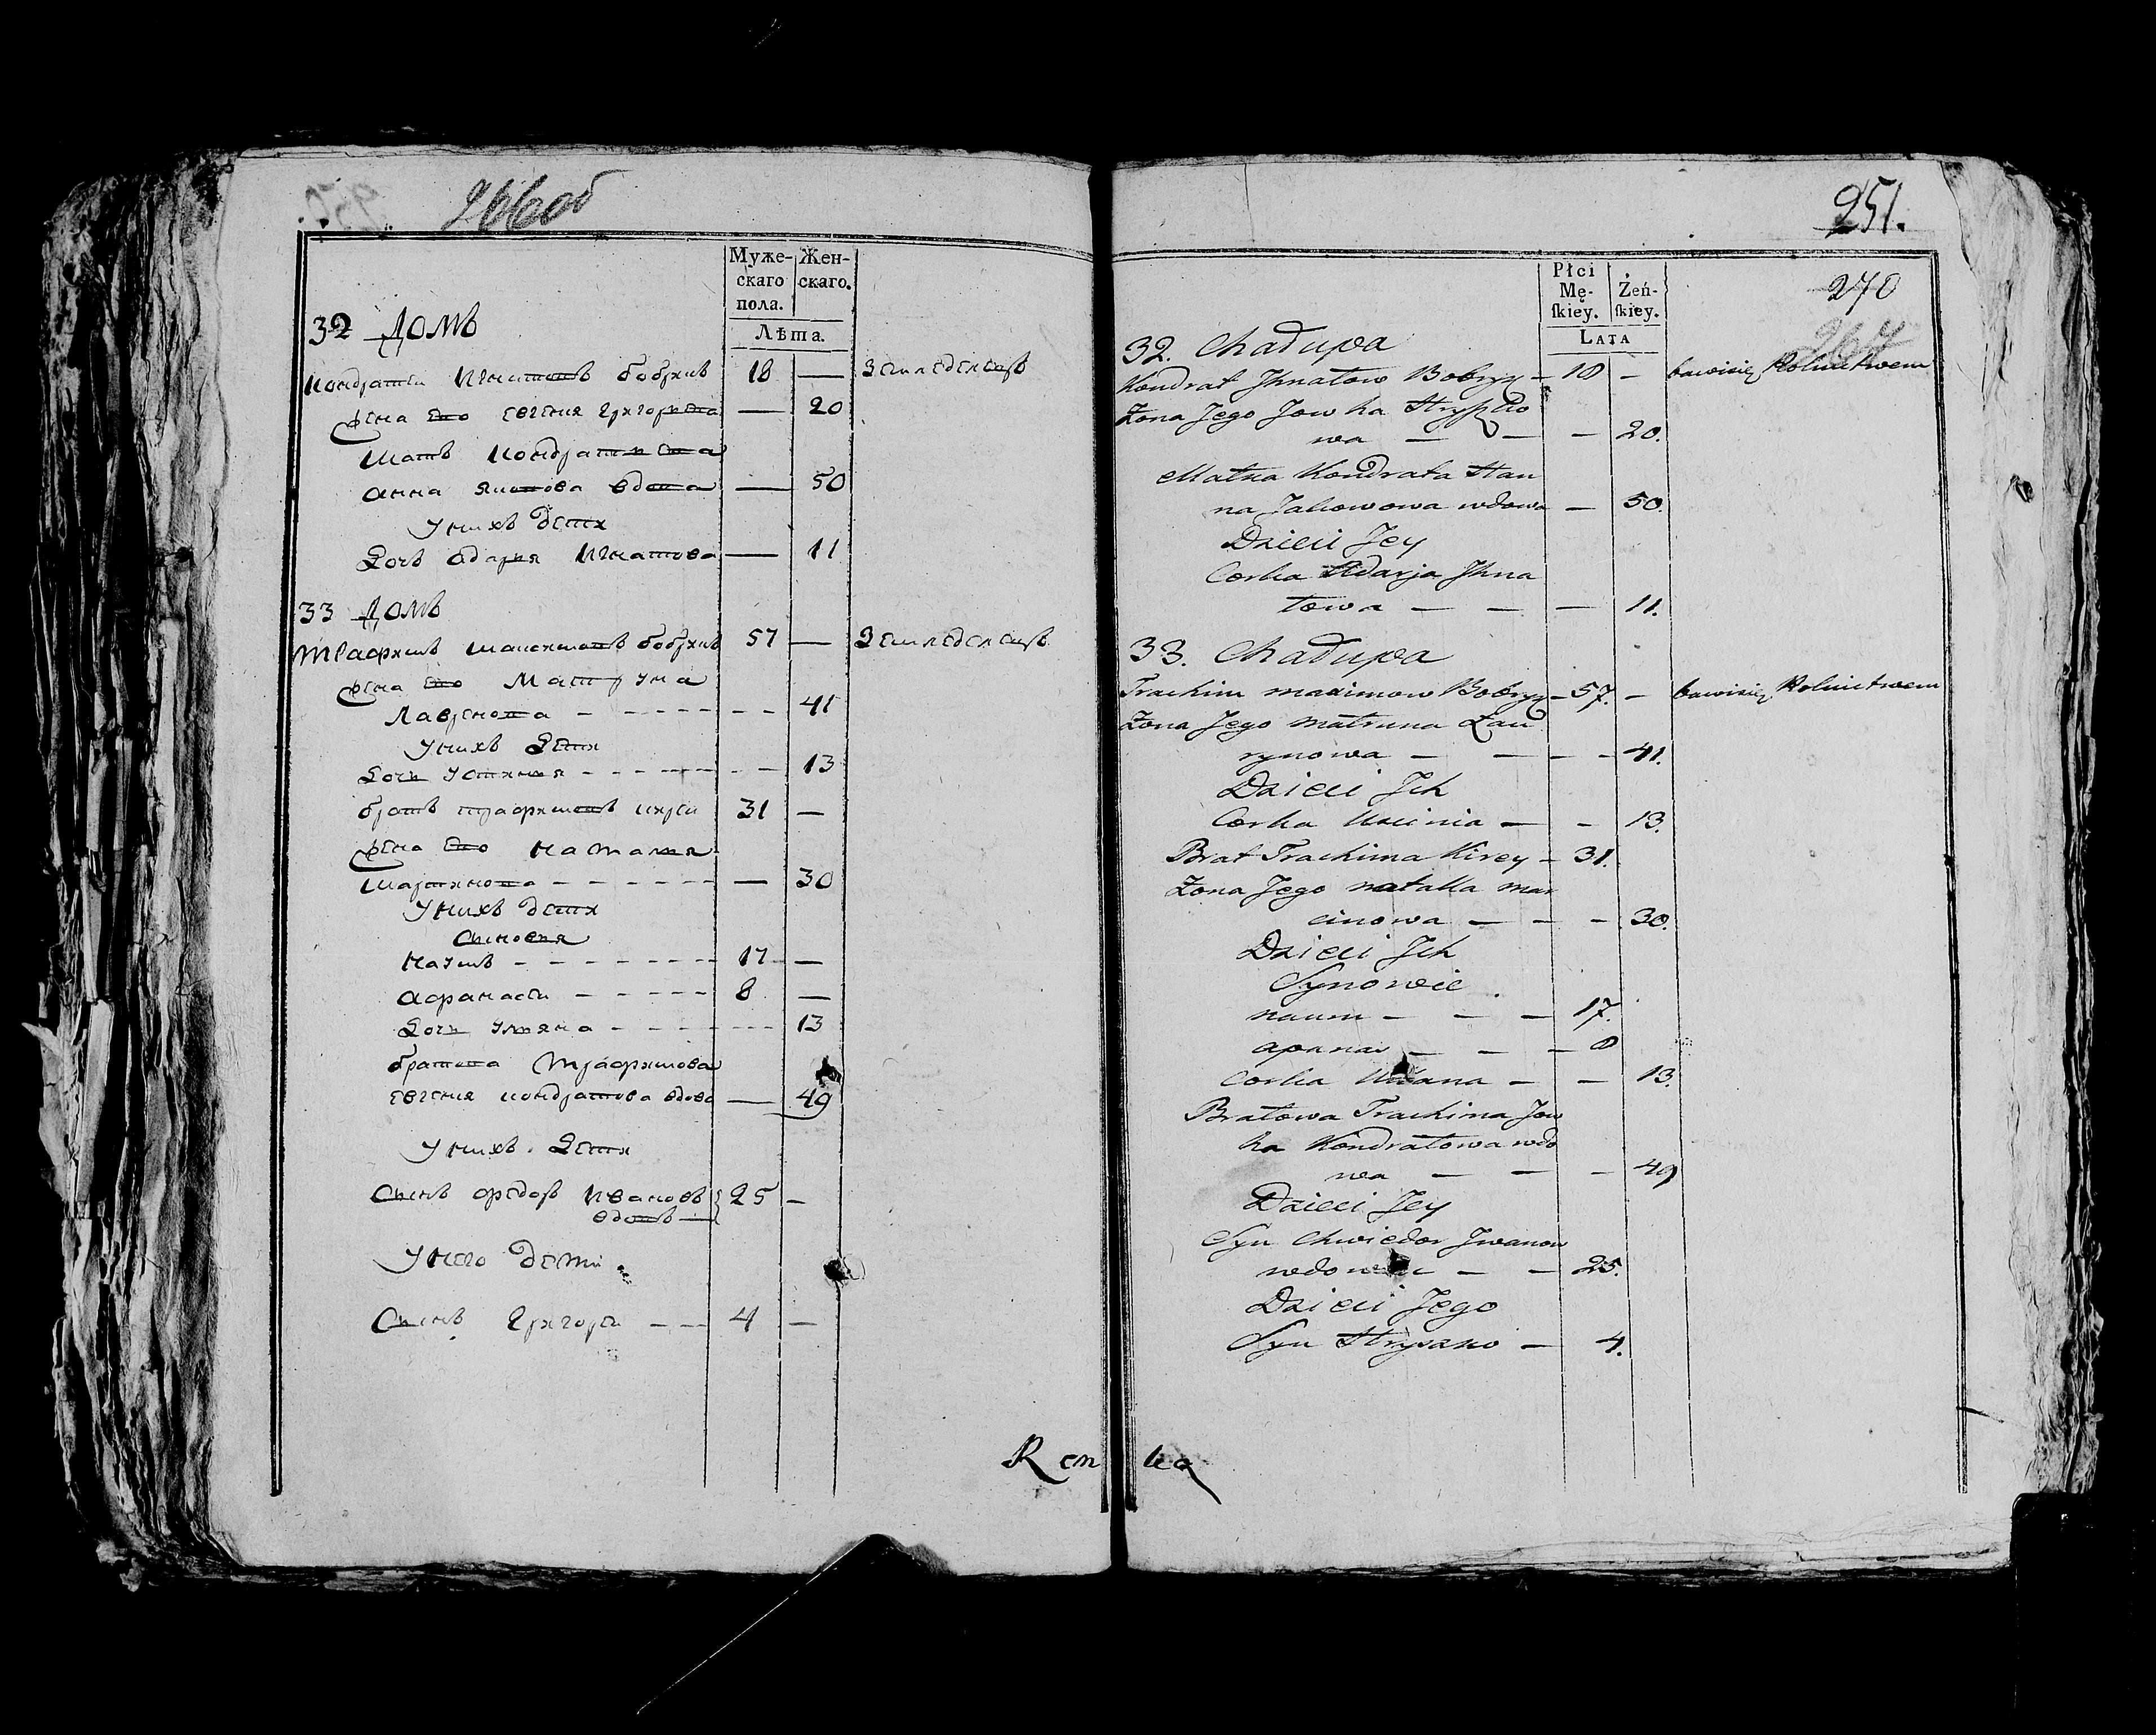 266об
Муже- Жен-
скаго скаго.
пола.
Лѣта.
32 Домъ
Кондратей Игнатовъ Бобрикъ 18 — Земледелецъ
жена ево Евгения Григорьева — 20
Мать Кондратьева
Анна Якимова вдова — 50
У них Дети
Дочь Одария Игнатова — 11
33 Домъ
Трафимъ Максимовъ Бобрикъ 57 — Земледелецъ
жена ево Матруна
Лавренова — 41
У нихъ Дети
Дочи Устиния — 13
братъ Трафимовъ Кирей 31 —
жена ево Наталия
Мартинова — 30
У нихъ дети
Сыновья
Наумъ — 17 —
Афанасей — 8 —
Дочи Уляна — 13
братова Трафимова
Евгения Кондратова вдова — 49
У нихъ Дети
Сынъ Федоръ Ивановъ 25 —
вдовъ —
У него Дети
Сынъ Григорей — 4 —
251.
270
267
Płci
Mę- Żeń-
ſkiey. ſkiey.
LATA
32. Chałupa
Kondrat Jhnatow Bobryk – 18 – bawisię Rolnictwem
Żona Jego Jowha Hryszko
wa — — – 20.
Matka Kondrata Han
na Jakowowa wdowa – 50.
Dzieci Jey
Corka Adarja Jhna
towa — — — 11.
33. Chałupa
Trachim maximow Bobryk – 57. – bawisię Rolnictwem
Żona Jego matruna Łau
rynowa — — – – 41.
Dzieci Jch
Corka Uscinia — – 13.
Brat Trachima Kirey – 31.
Żona Jego natalla mar
cinowa — — – 30.
Dzieci Jch
Synowie
naum — — — 17.
apanas — — – 8
Corka Ulana — – 13.
Bratowa Trachima Jow
ha Kondratowa wdo
wa — — – 49
Dzieci Jey
Syn Chwiedor Jwanow
wdowiec — — 25.
Dzieci Jego
Syn Hryszko — 4.
Ręn ką